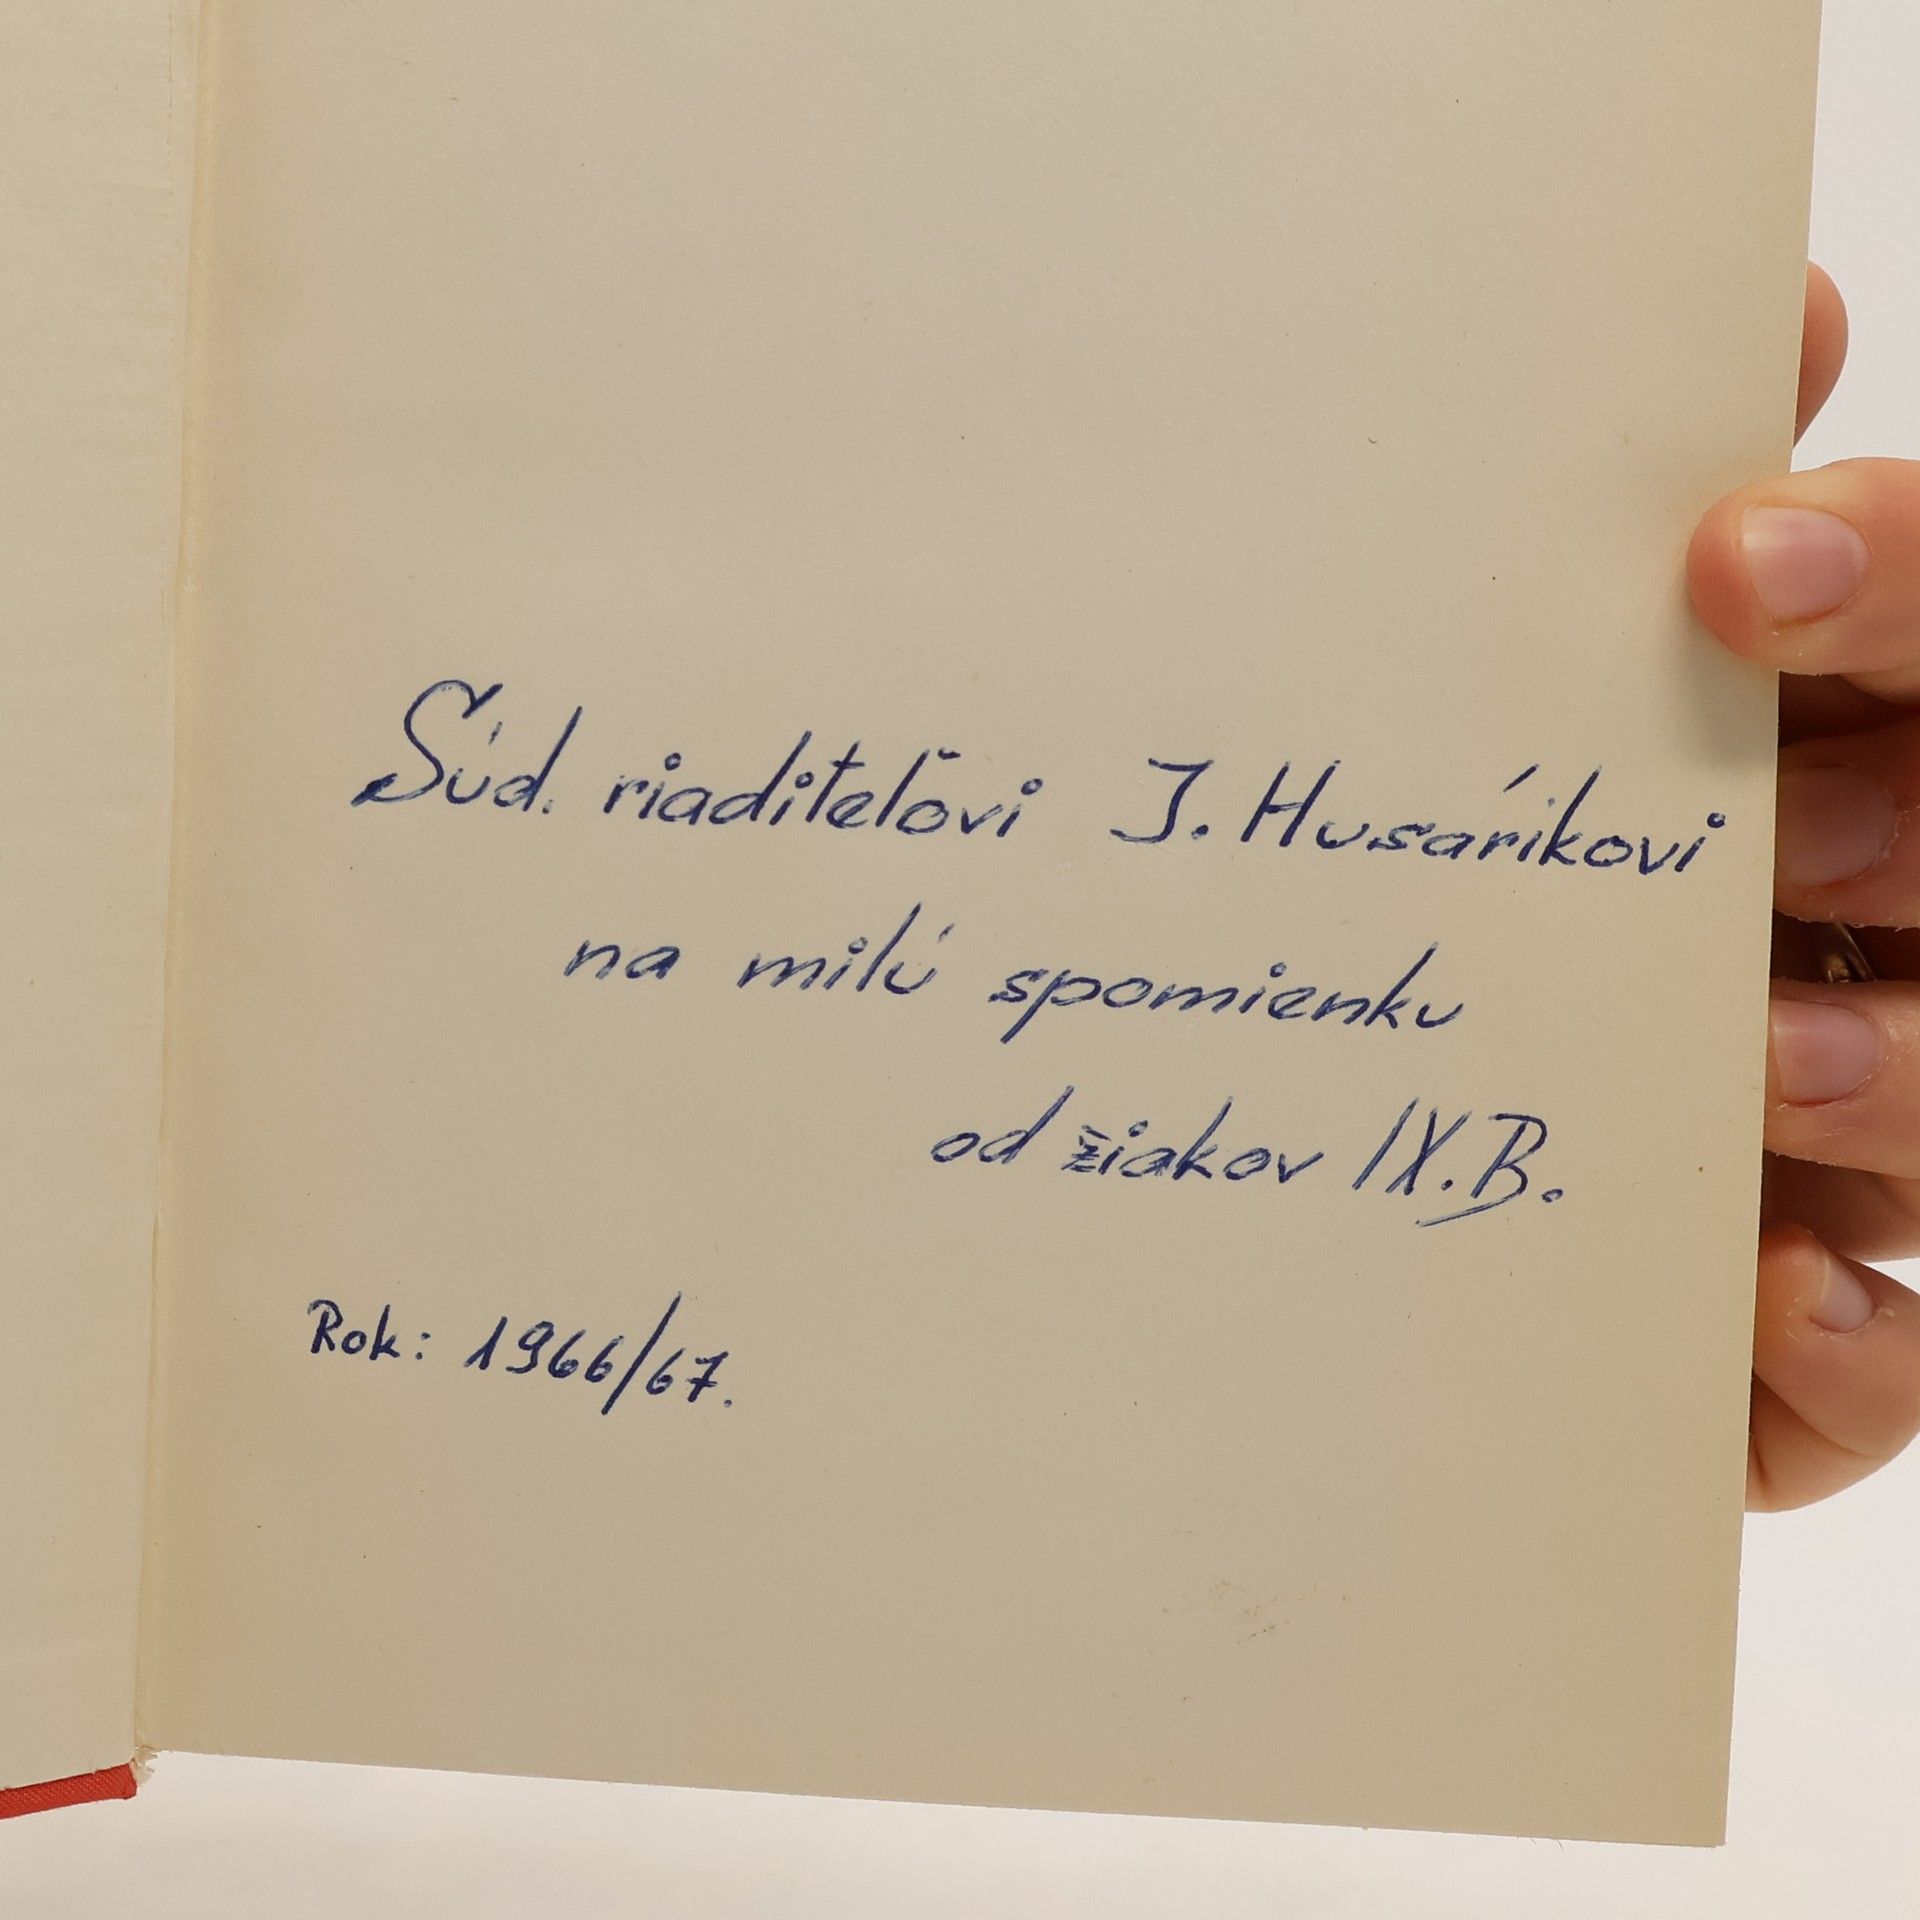 Súd. riaditeľovi J. Husárikovi
na milú spomienku
od žiakov IX.B.
Rok: 1966/67.